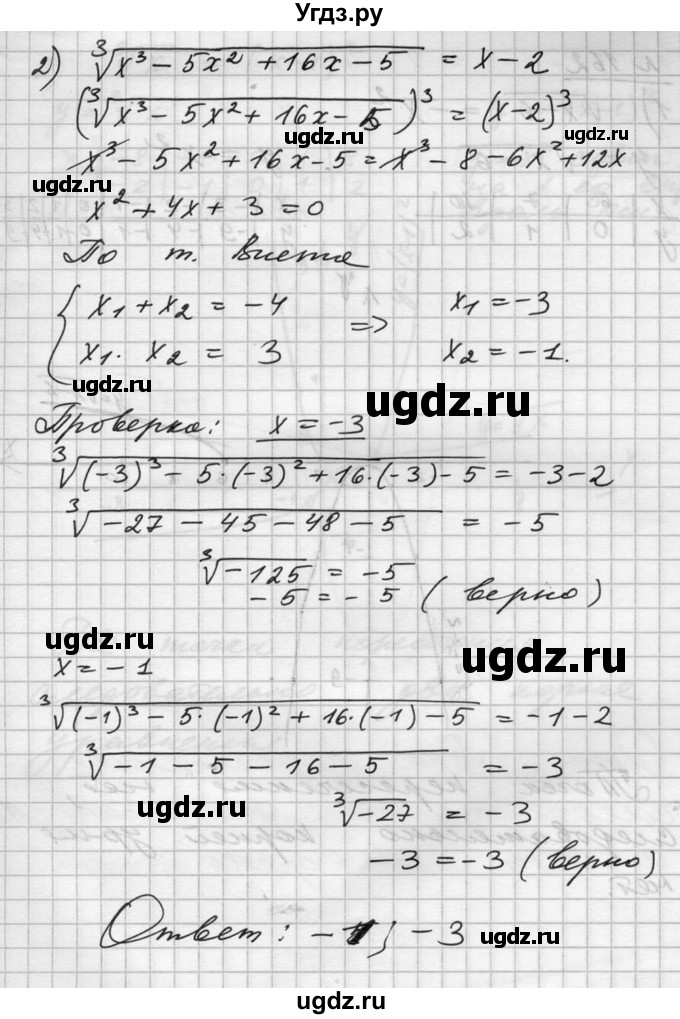 Угдз.ру
2) ∛(x³ − 5x² + 16x − 5) = x − 2
(∛(x³ − 5x² + 16x − 5))³ = (x−2)³
ugdz.ru
ugdz.ru
x³ − 5x² + 16x − 5 = x³ − 8 − 6x² + 12x
ugdz.ru
ugdz.ru
x² + 4x + 3 = 0
По т. Виета
{ x₁ + x₂ = −4 => x₁ = −3
x₁ · x₂ = 3 x₂ = −1.
ugdz.ru
ugdz.ru
Проверка: x = −3
∛((−3)³ − 5·(−3)² + 16·(−3) − 5) = −3−2
∛(−27 − 45 − 48 − 5) = −5
ugdz.ru
ugdz.ru
∛−125 = −5
−5 = −5 (верно)
ugdz.ru
ugdz.ru
x = −1
∛((−1)³ − 5·(−1)² + 16·(−1) − 5) = −1−2
∛(−1 − 5 − 16 − 5) = −3
ugdz.ru
ugdz.ru
∛−27 = −3
−3 = −3 (верно)
Ответ: −1; −3
ugdz.ru
ugdz.ru
ugdz.ru